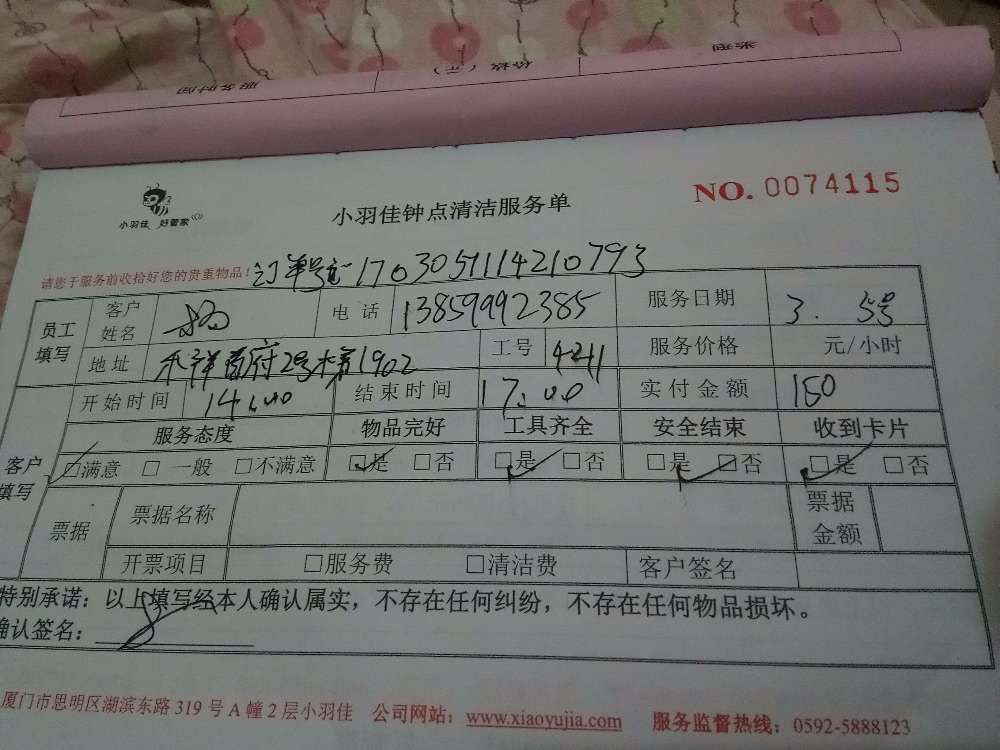 服务时间 价格(元) 账张
小羽佳 好管家
小羽佳钟点清洁服务单
NO. 0074115
请您于服务前收拾好您的贵重物品！
订单号 1703051114210793
员工填写 客户姓名 杨 电话 13859992385 服务日期 3. 5号
地址 禾祥首府2号楼1902 工号 4211 服务价格 元/小时
开始时间 14:00 结束时间 17:00 实付金额 150
客户填写 服务态度 物品完好 工具齐全 安全结束 收到卡片
☑满意 □一般 □不满意 ☑是 □否 ☑是 □否 □是 ☑否 ☑是 □否
票据 票据名称 票据金额
开票项目 □服务费 □清洁费 客户签名
特别承诺：以上填写经本人确认属实，不存在任何纠纷，不存在任何物品损坏。
确认签名：
厦门市思明区湖滨东路 319 号 A 幢 2 层小羽佳 公司网站：www.xiaoyujia.com 服务监督热线：0592-5888123